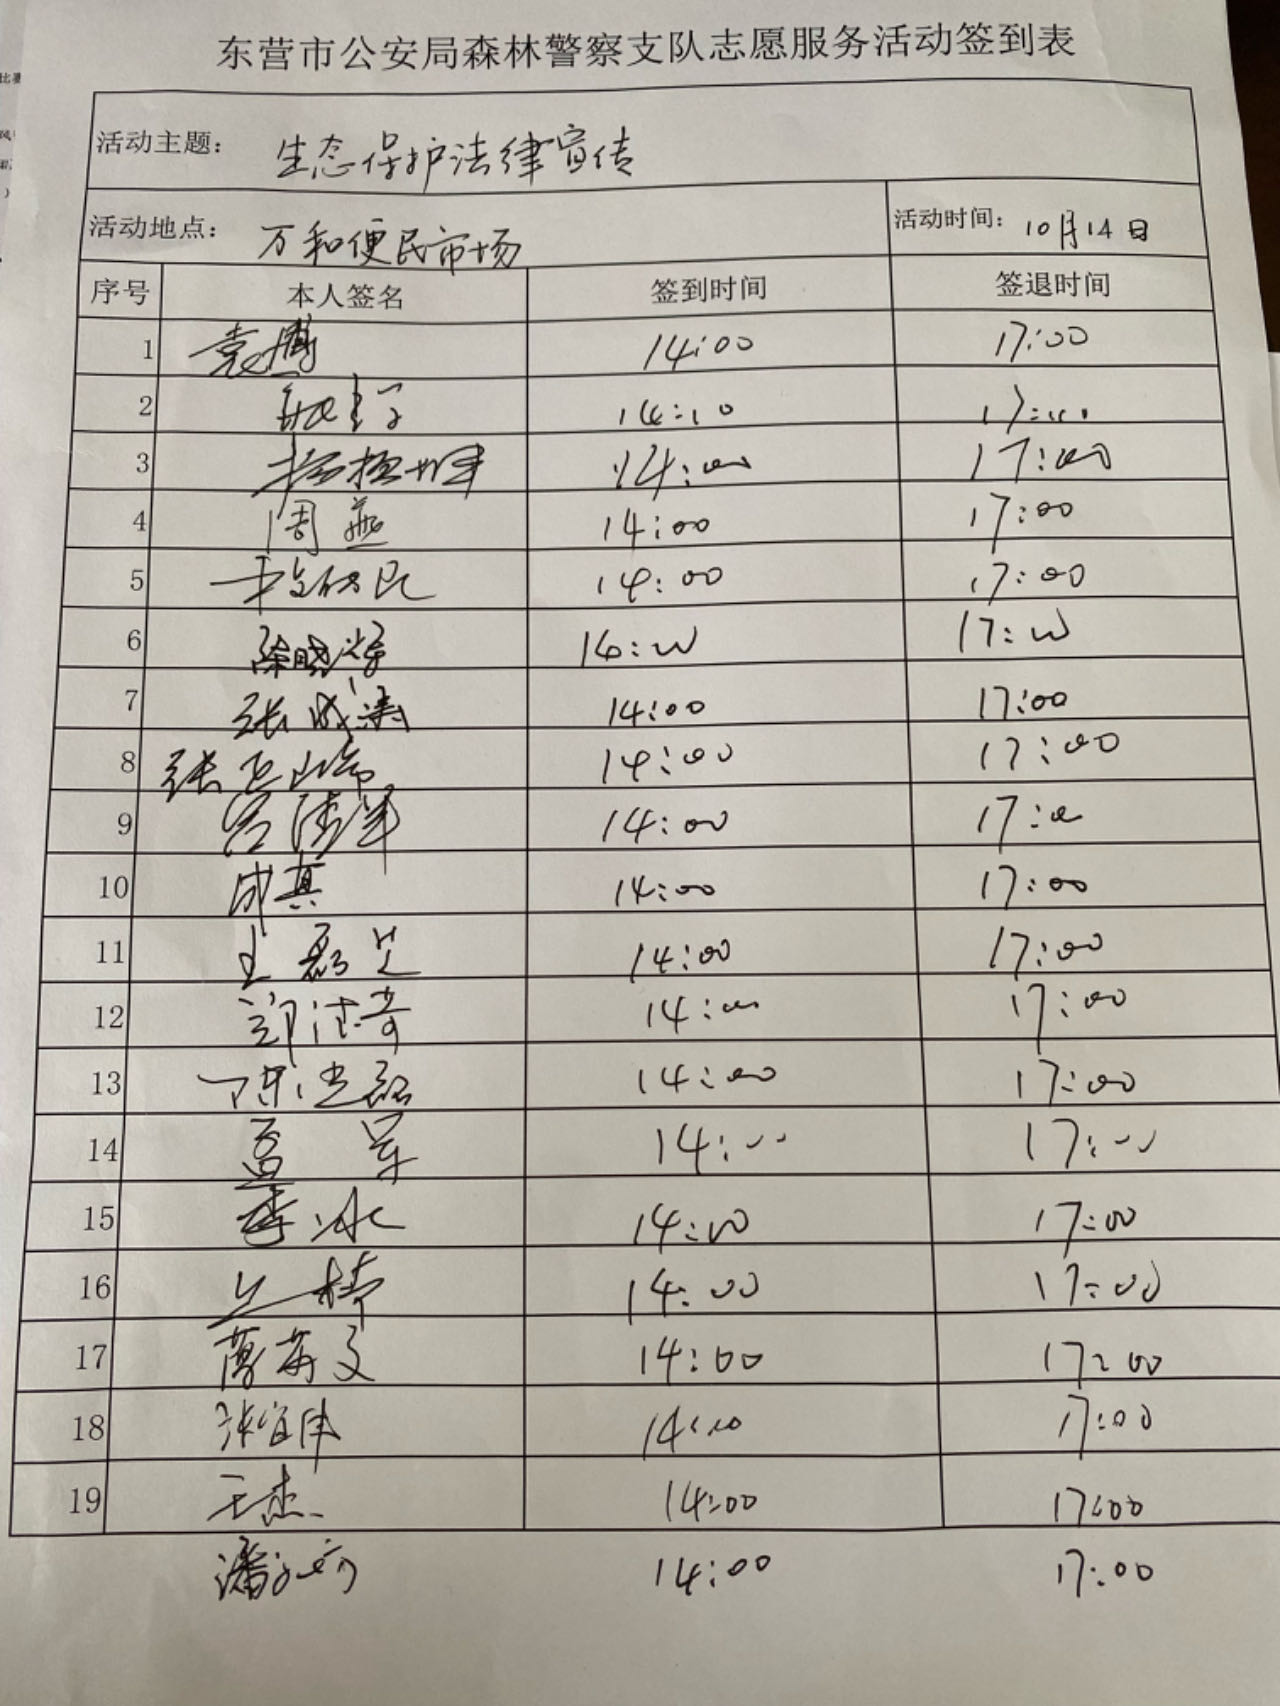 东营市公安局森林警察支队志愿服务活动签到表
活动主题： 生态保护法律宣传
活动地点： 万和便民市场 活动时间： 10月14日
序号 本人签名 签到时间 签退时间
1 袁鹰 14:00 17:00
2 14:10
3 14:00 17:00
4 周燕 14:00 17:00
5 14:00 17:00
6 17:00
7 张成涛 14:00 17:00
8 张 14:00 17:00
9 14:00 17:00
10 成真 14:00 17:00
11 王磊 14:00 17:00
12 14:00 17:00
13 14:00 17:00
14 孟军 14:00 17:00
15 李冰 14:00 17:00
16 14:00 17:00
17 14:00 17:00
18 张宜伟 17:00
19 王杰 14:00 17:00
潘 14:00 17:00